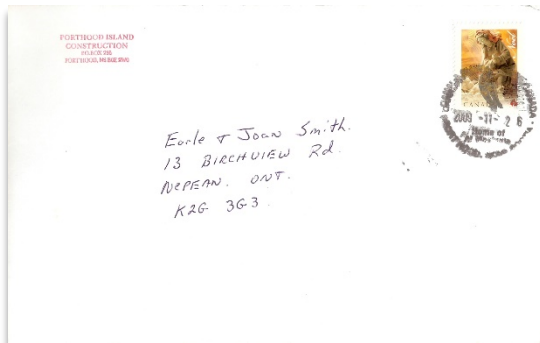 PORTHOOD ISLAND
CONSTRUCTION
PO BOX
CANADA
2009 -11- 2 6
Home of
Earle & Joan Smith.
13 BIRCHVIEW Rd.
NEPEAN. ONT.
K2G 3G3